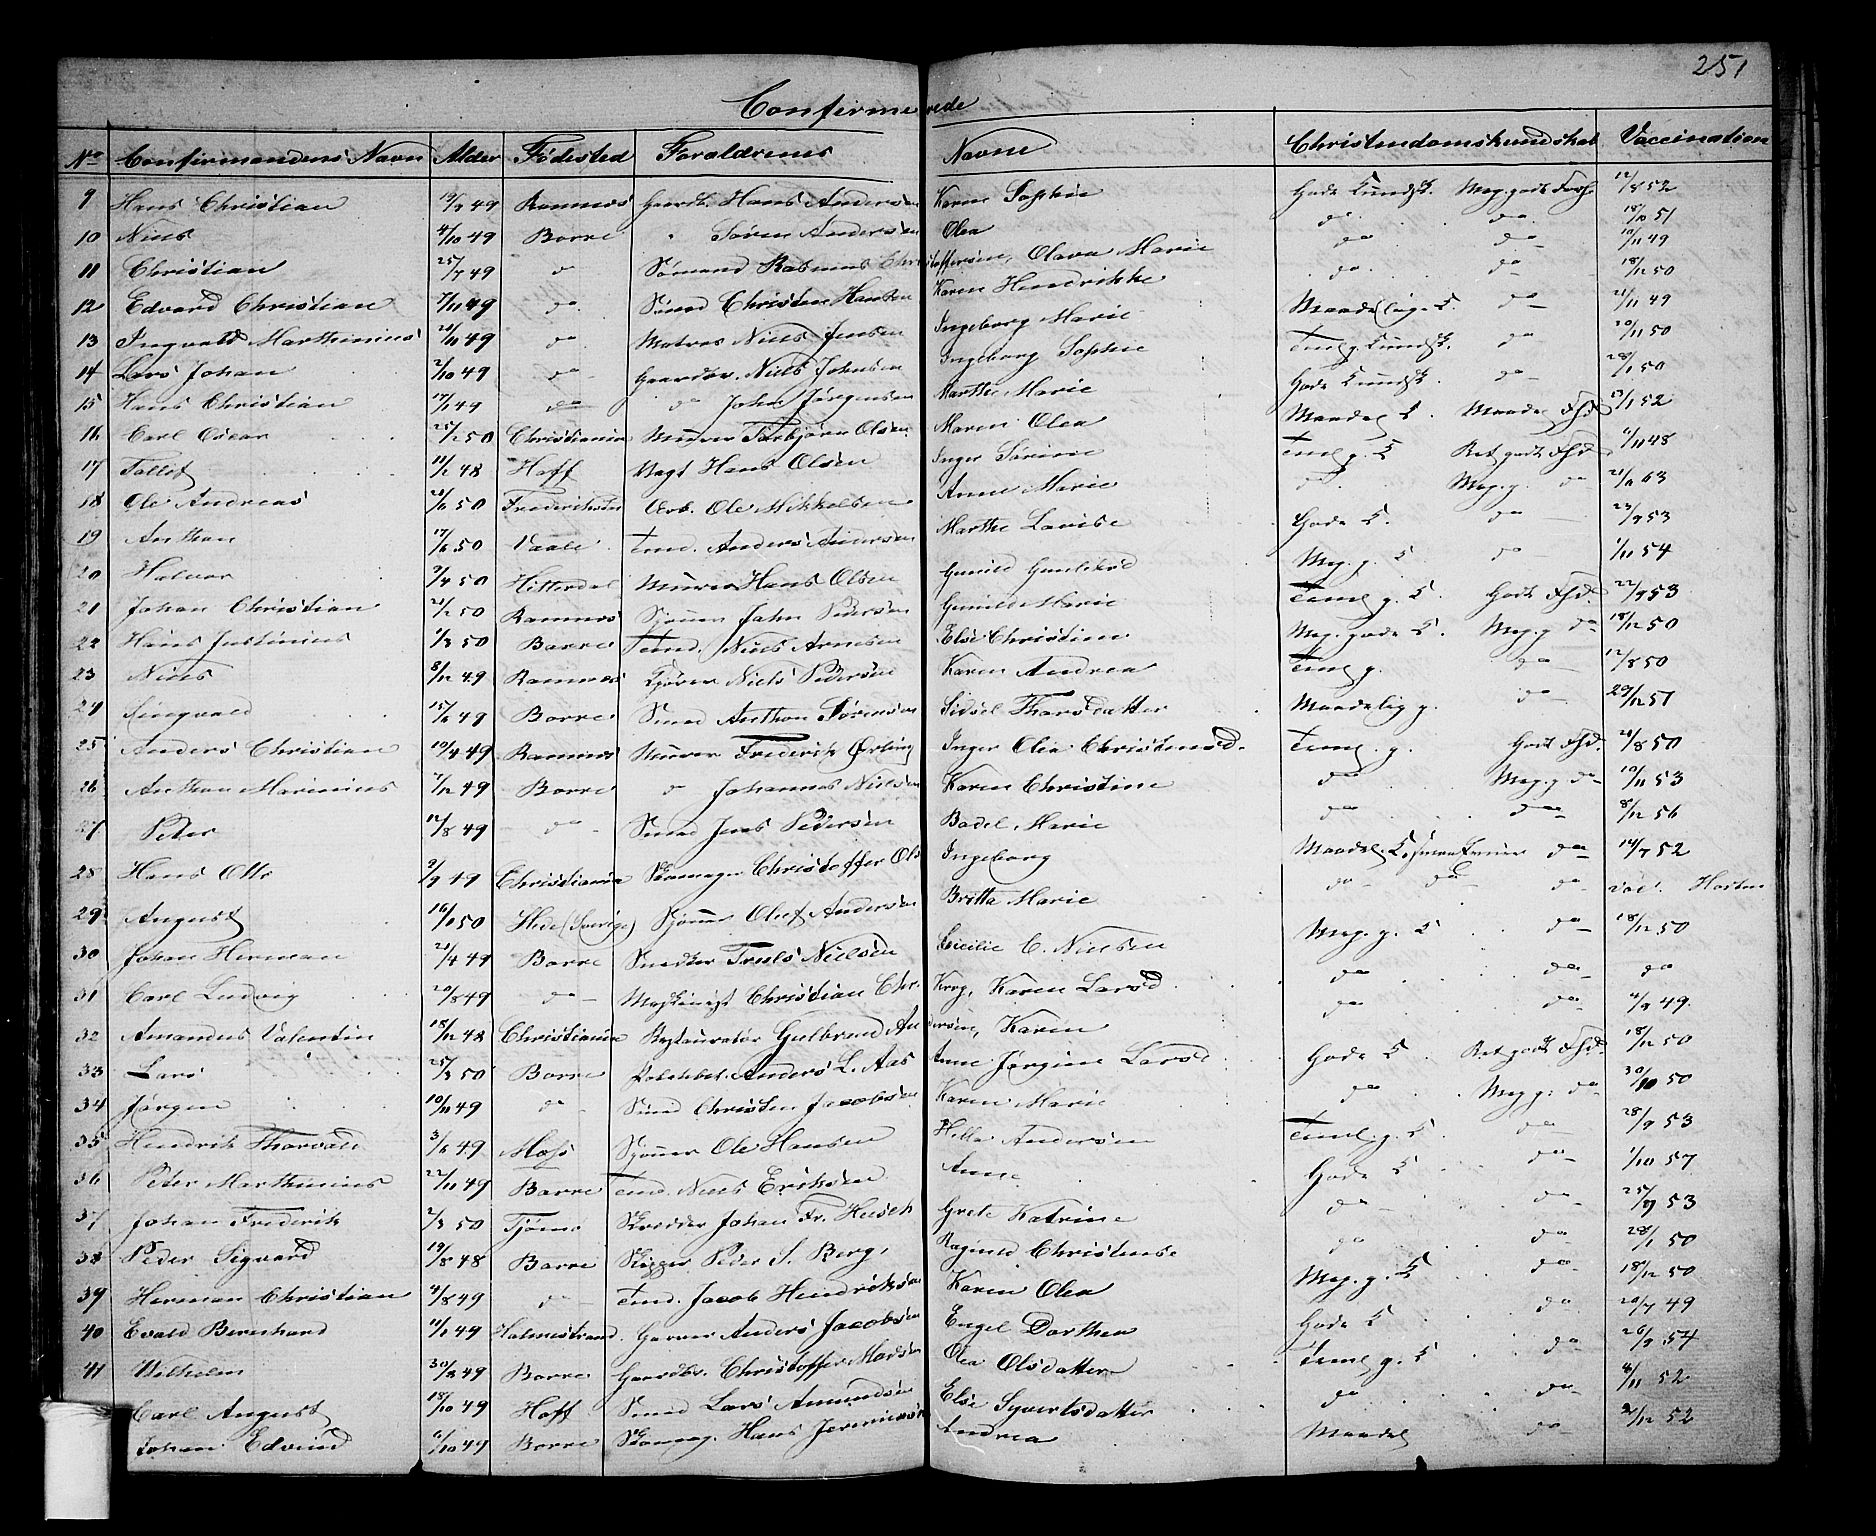 251
Confirmerede
No Confirmandens Navn Alder Fødested Forældrenes Navne Christendomskundskab Vaccination
9 Hans Christian 49 Ramnes Gaardb. Hans Andersen Karen Sophie Gode Kundsk. Meg. godt Forh. 12/8 52
10 Niels 4/10 49 Borre " Søren Andersen Olea do do 18/10 51
11 Christian 25/7 49 d Sømand Rasmus Christoffersen, Olava Marie do do 10/11 49
12 Edvard Christian 7/11 49 do Smed Christen Hansen Karen Hendrikke do do 18/12 50
13 Ingvald Marthinius 49 do Matros Niels Jensen Ingeborg Marie Maadelige K do 21/11 49
14 Lars Johan 2/10 49 do Gaardbr. Niels Johnsen Ingeborg Sophie Teml. g. Kundsk. do 20/11 50
15 Hans Christian 17/1 49 do do John Jørgensen Marthe Marie Gode Kundsk. do 28/1 50
16 Carl Oscar 25/2 50 Christiania Murer Torbjørn Olsen Maren Olea Maadel K. Maadel Fhd 52
17 Tollef 11/2 48 Hoff Vagt Hans Olsen Inger Sørine Teml g. K Ret godt Fhd 11/11 48
18 Ole Andreas 50 Frederikstad Arb. Ole Mikkelsen Anne Marie d Meg. g. do 63
19 Anthon 50 Vaale Tmd. Anders Andersen Marthe Lovise Gode K. do 23/9 53
20 Halvor 50 Hitterdal Murer Hans Olsen Gunild Gunliksd Meg. g. K do 1/11 54
21 Johan Christian 21/2 50 Ramnes Sjømm John Pedersen Gunilde Marie Teml g. K Godt Fhd. 22/9 53
22 Hans Justinius 1/3 50 Borre Tmd. Niels Arnesen Else Christine Meg. gode K. Meg. g do 18/12 50
23 Niels 8/12 49 Ramnes Niels Pedersen Karen Andrea Teml g. do 12/8 50
24 Ringvald 49 Borre Smed Anthon Sørensen Sidsel Thorsdatter Maadelig g. do 29/12 51
25 Anders Christian 10/4 49 Ramnes Murer Frederik Ørling Inger Olea Christensd. Teml. g. Godt Fhd. 50
26 Anthon Marinius 7/12 49 Borre d Johannes Nielsen Karen Christine do Meg. g do 10/11 53
27 Peter 12/8 49 do Smed Jens Pedersen Bodel Marie do do 8/12 56
28 Hans Otto 2/9 49 Christiania Skomager Christoffer Ols Ingeborg Maadel. K do 14/7 52
29 August 16/1 50 Hede (Sverige) Sjømm Oluf Andersen Britta Marie do do do Horten
30 Johan Herman 21/4 49 Borre Snedker Truls Nielsen Cecilie C. Nielsen Meg. g. K do 18/12 50
31 Carl Ludvig 20/8 49 do Maskinist Christian Chr. Krog, Karen Larsd do do do
32 Amandus Valentin 18/12 48 Christiania Restauratør Gulbrand Andersen, Karen do do 4/9 49.
33 Lars 25/3 50 Borre Anders L. Aas Anne Jørgine Larsd Gode K Ret godt Fhd. 18/12 50
34 Jørgen 10/11 49 do Smed Christen Jacobsen Karen Marie do Meg g: do 30/10 50
35 Hendrik Thorvald 49 Moss Sjømm Ole Hansen Helle Andersen Teml. g. K do 28/9 53
36 Peter Marthinius 22/11 49 Borre Tmd. Niels Eriksen Anne Gode K do 1/10 57
37 Johan Frederik 2/3 50 Tjømø Skrædder Johan Fr. Husch Grete Katrine do do 25/9 53
38 Peder Sigvard 19/8 48 Borre Skipper Peder S. Berg, Ragnild Christense do do 28/1 50
39 Herman Christian 4/8 49 do Tmd. Jacob Hendriksen Karen Olea Meg. g. K do 18/12 50
40 Evald Bernhard 49 Holmestrand. Garver Anders Jacobsen Engel Dorthea Gode K do 20/7 49
41 Wilhelm 30/8 49 Borre Gaardbr. Christoffer Madsen Olea Olsdatter Teml g. K do 26/9 54
Carl August 18/10 49 Hoff Smed Lars Amundsen Else Syvertsdatter do do 8/11 52
Johan Edvind 49 Borre Skomag. Hans Jeremiasen Andrea Maadel do 52